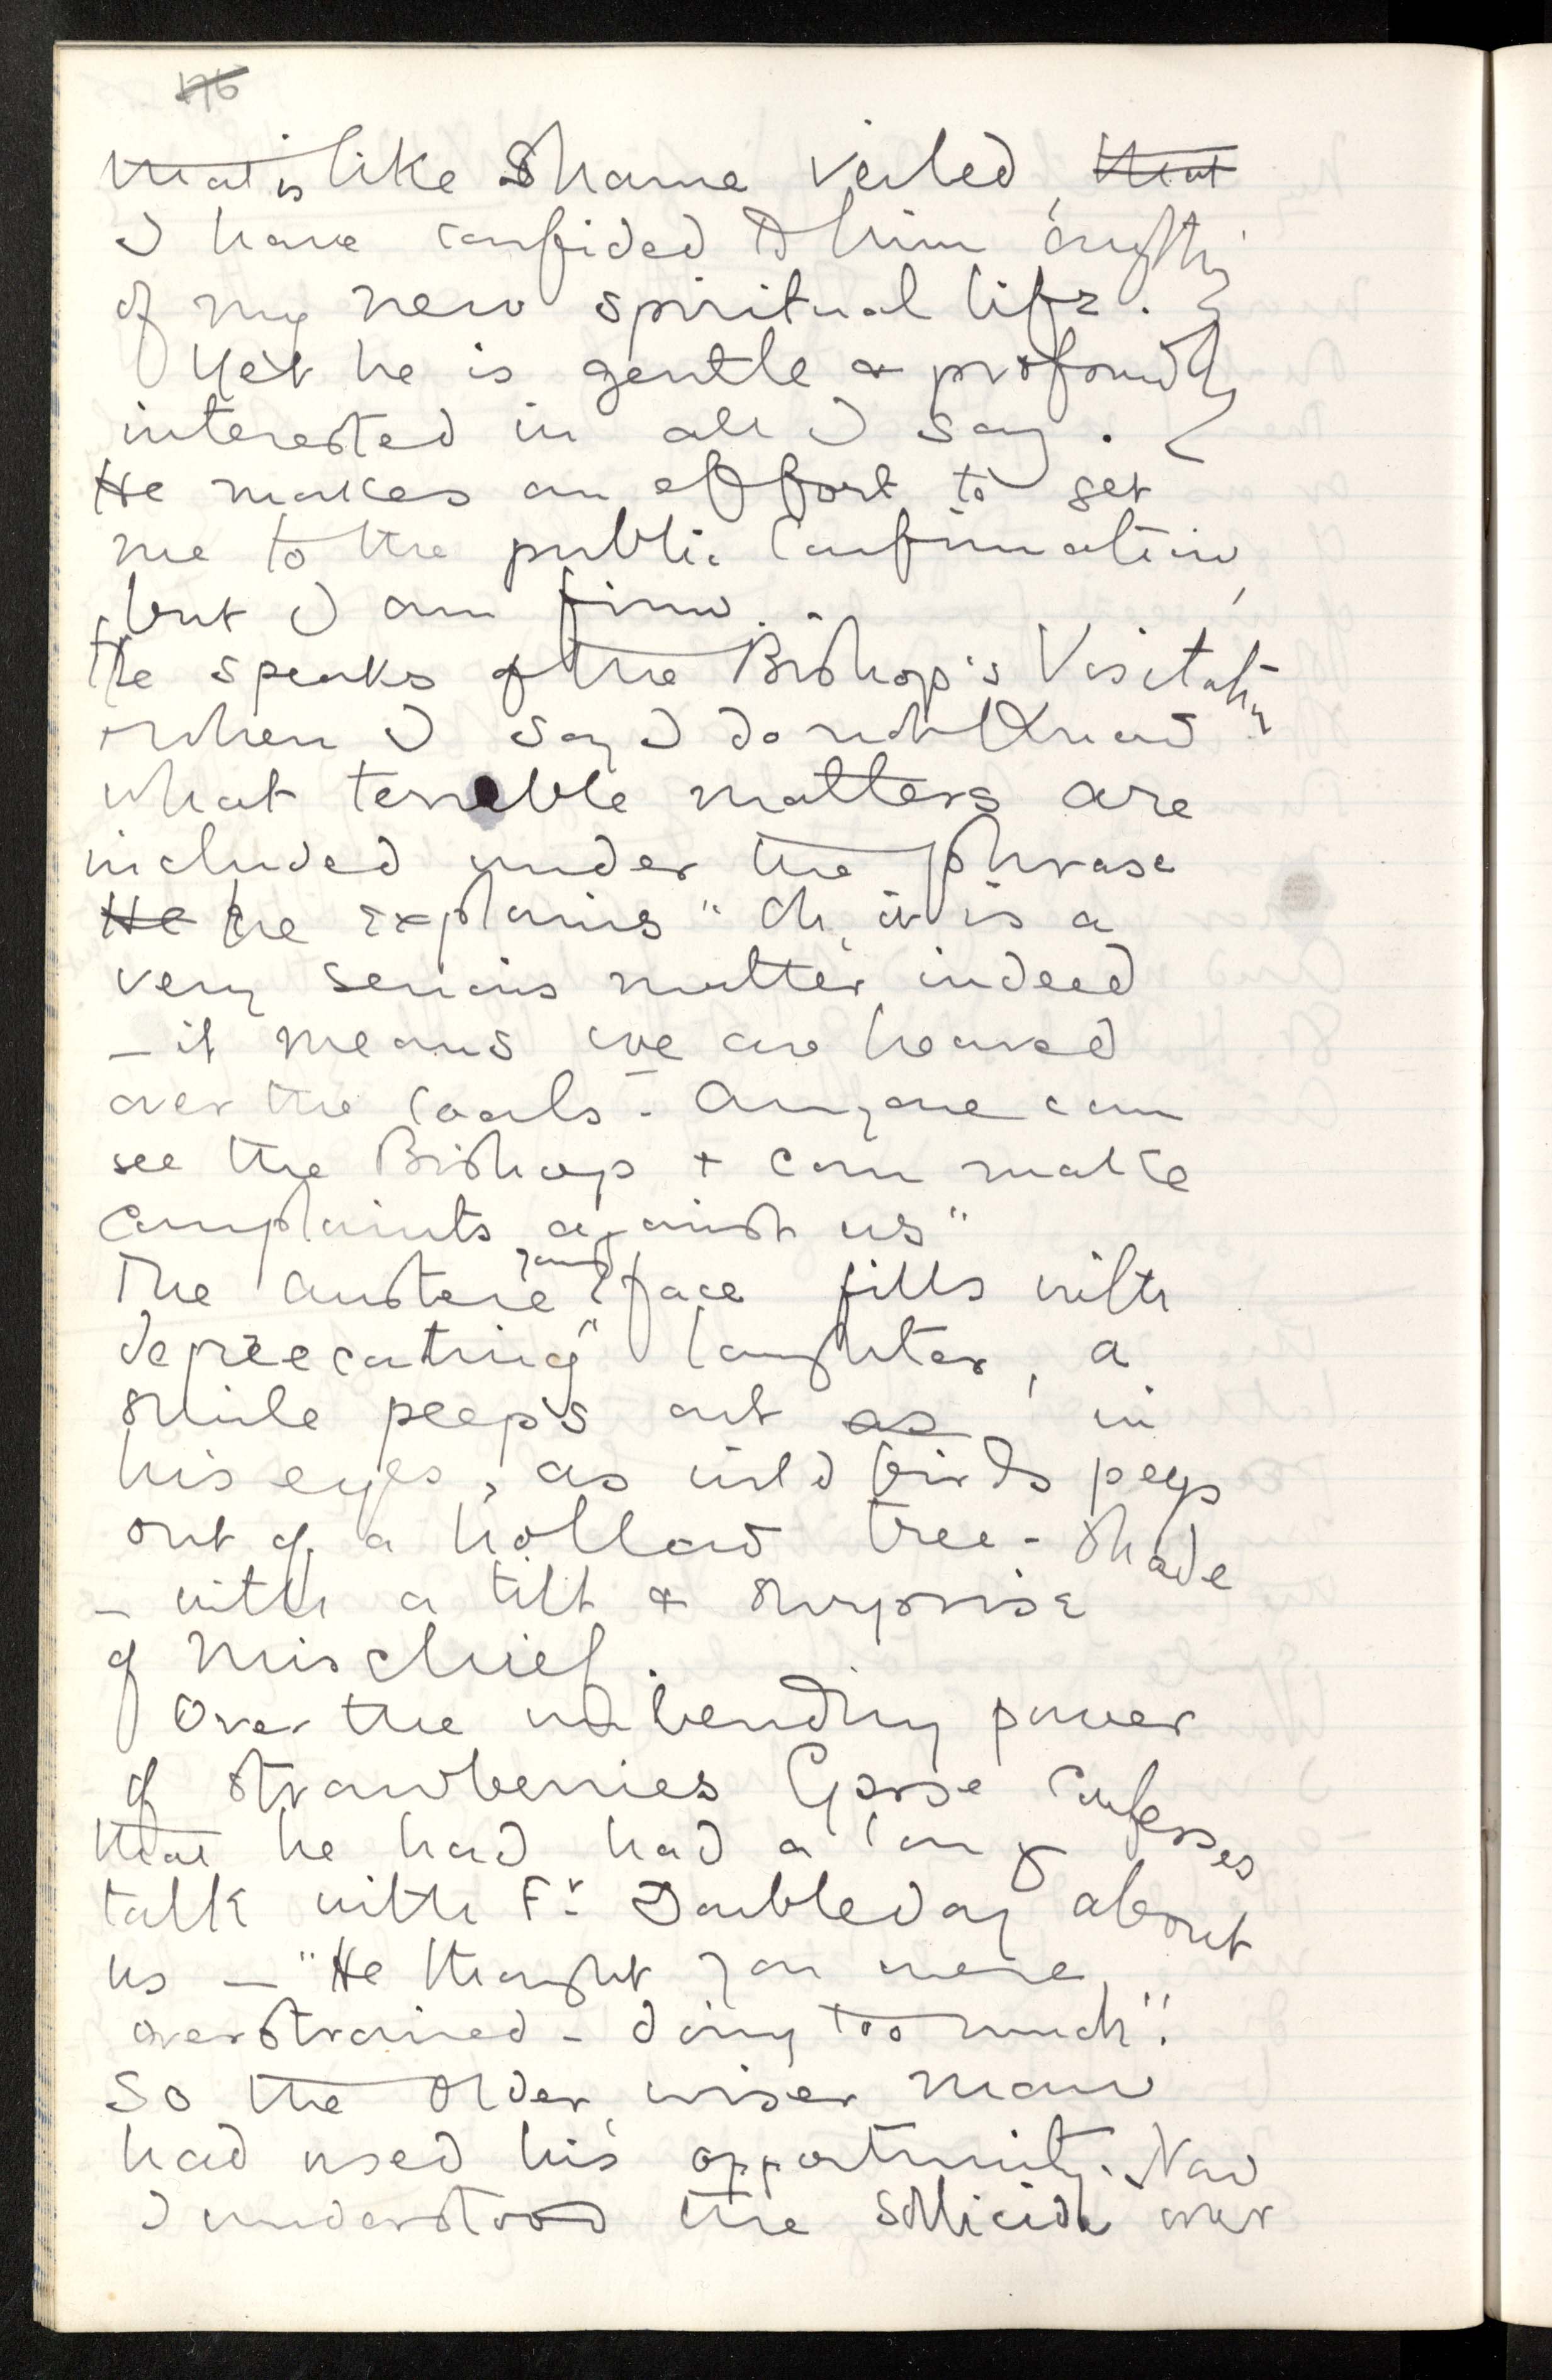 176
that is like Shame veiled, that
I have confided to him anything
of my new spiritual life.
Yet he is gentle & profoundly
interested in all I say.
He makes an effort to get
me to the public Confirmation,
but I am firm.
He speaks of the Bishop's Visitation
when I say I do not know
what terrible matters are
included under the phrase
He he explains "Oh, it is a
very serious matter indeed
— it means we are hauled
over the coals - Anyone can
see the Bishop & can make
complaints against us"
The austere young face fills with
depreecating laughter, a
smile peeps out as, in
his eyes, as wild birds peep
out of a hollow tree - shade
— with a tilt & surprise
of mischief.
Over the unbending power
of strawberries Gosse confesses
that he had had a long
talk with Fr. Doubleday about
us — "He thought you were
overstrained - doing too much".
So the older, wiser man
had used his opportunity. Now
I understood the over